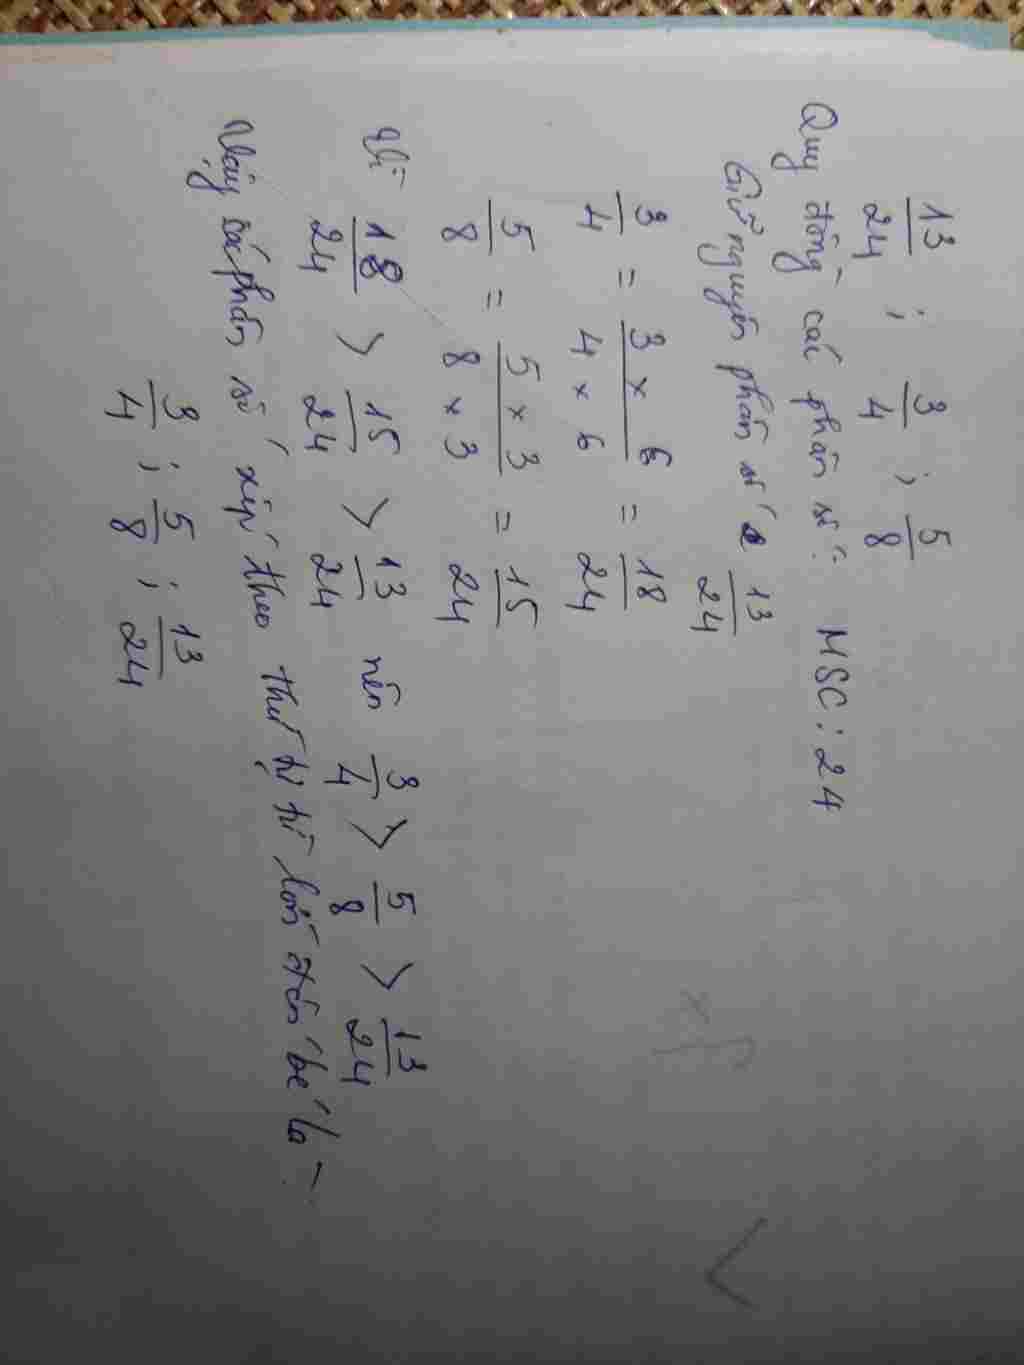 13/24 ; 3/4 ; 5/8
Quy đồng các phân số: MSC: 24
Giữ nguyên phân số 13/24
3/4 = 3 × 6 / 4 × 6 = 18/24
5/8 = 5 × 3 / 8 × 3 = 15/24
Vì 18/24 > 15/24 > 13/24 nên 3/4 > 5/8 > 13/24
Vậy các phân số xếp theo thứ tự từ lớn đến bé là:
3/4 ; 5/8 ; 13/24